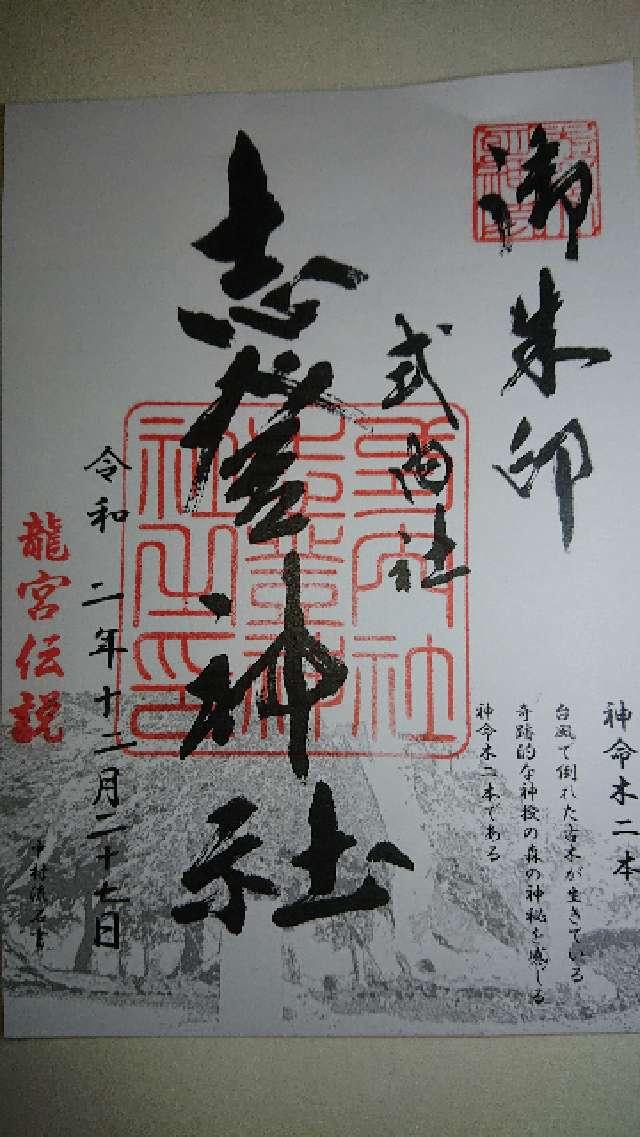 御朱印
式内社
志登神社
神命木二本
台風で倒れた古木が生きている
奇蹟的な神授の森の神秘を感じる
神命木二本である
令和 二年十二月二十七日
龍宮伝説